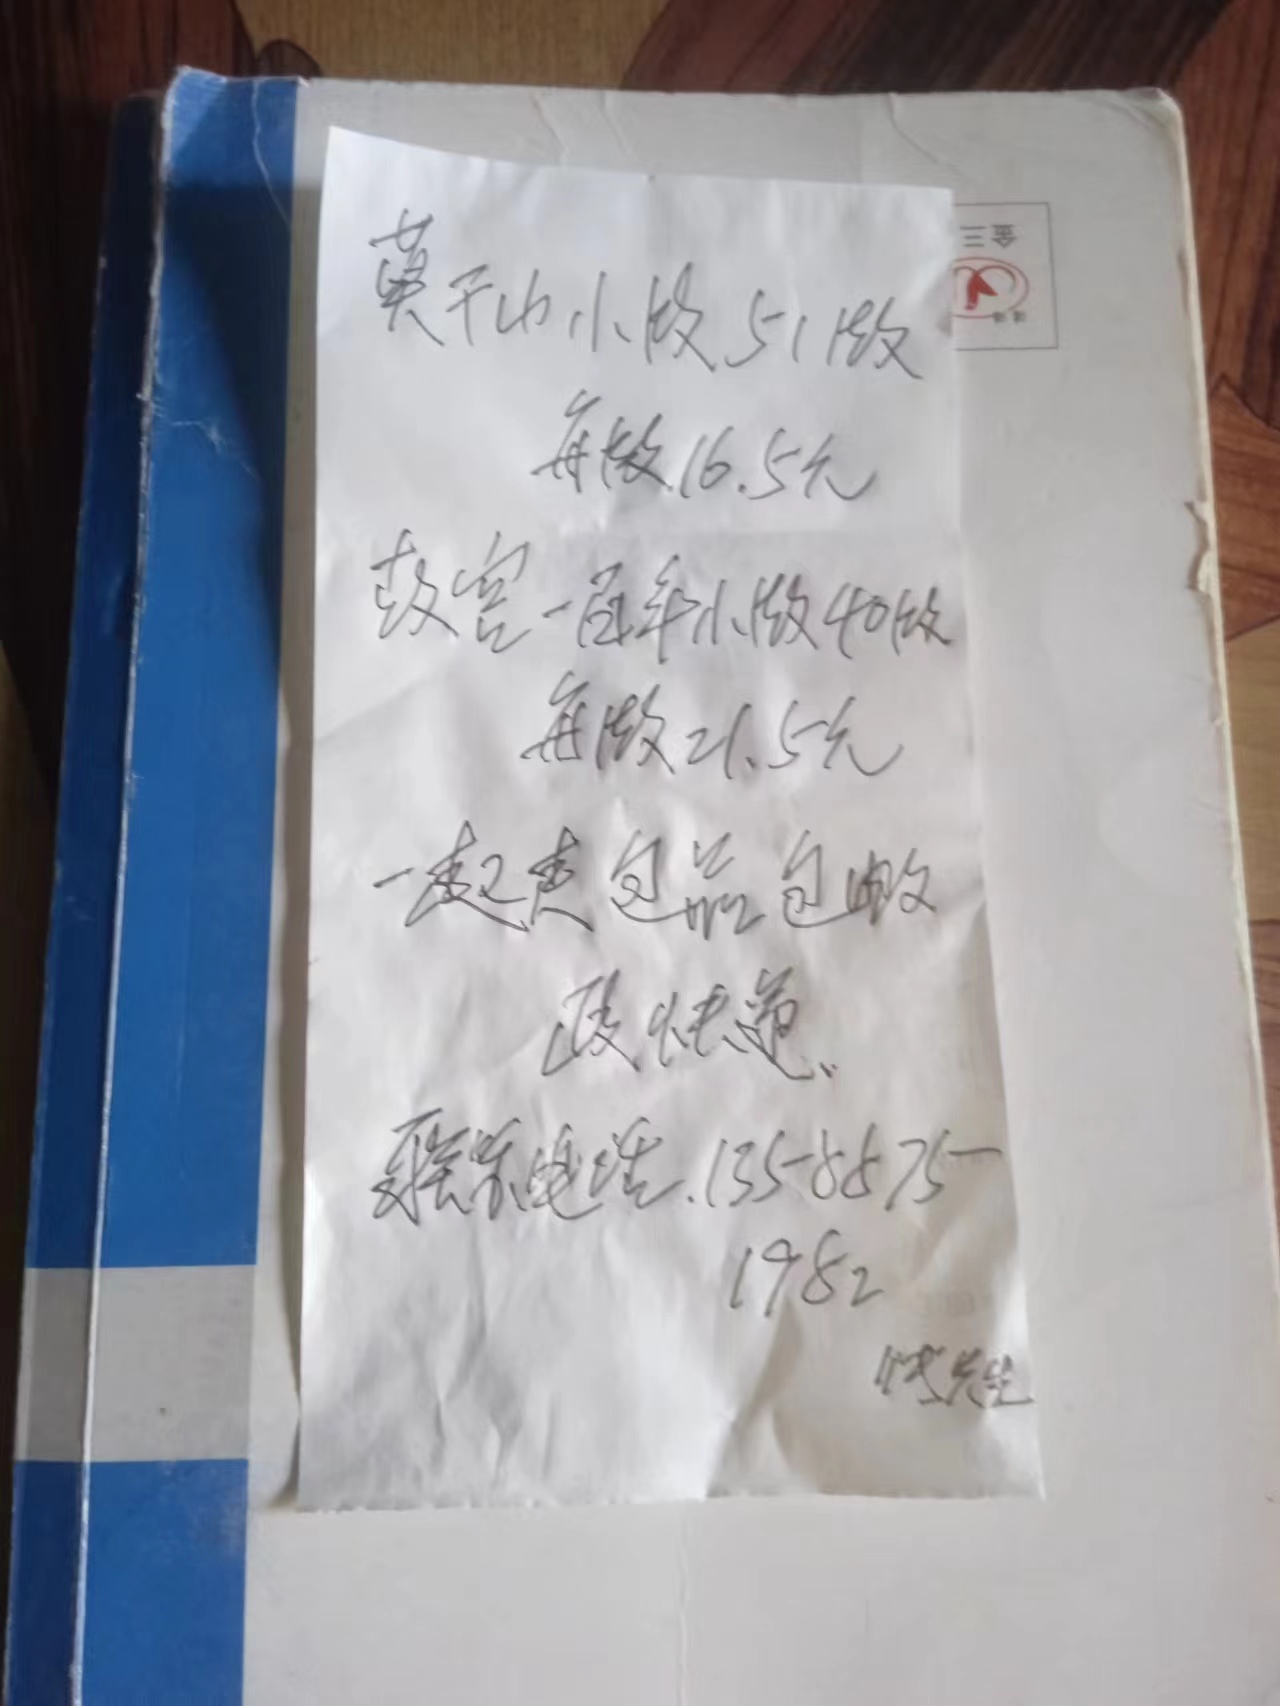 莫干山小版51版
每版16.5元
故宫一百年小版40版
每版21.5元
一起走包品包邮
政快递、
联系电话.135-8875-
1982
先生
金三